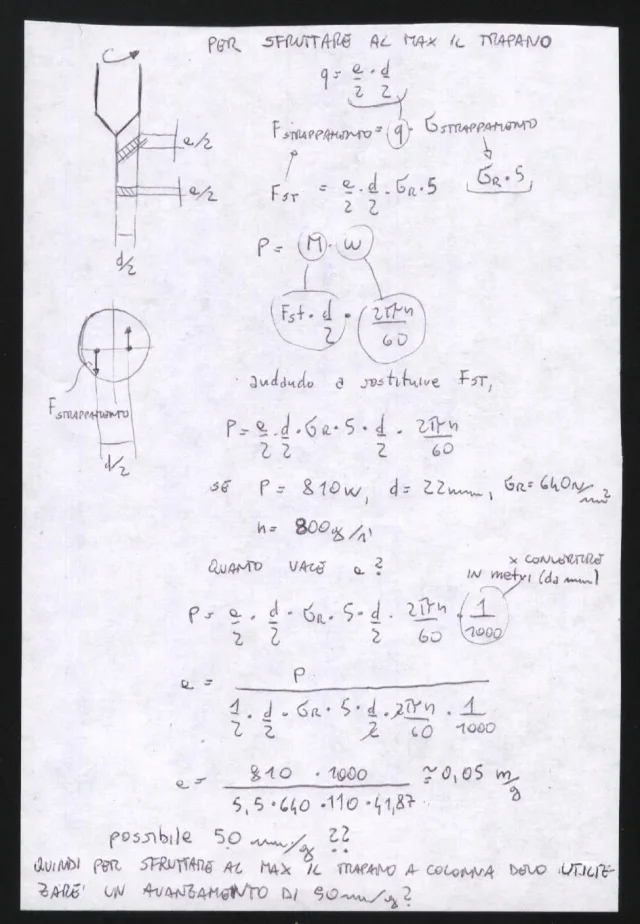 PER SFRUTTARE AL MAX IL TRAPANO
q = e/2 · d/2
e/2
F STRAPPAMENTO = q · σ STRAPPAMENTO
σR · 5
e/2
FST = e/2 · d/2 · σR · 5
P = M · W
d/2
Fst · d/2 · 2πn/60
andando a sostituire FST,
F STRAPPAMENTO
P = e/2 · d/2 · σR · 5 · d/2 · 2πn/60
d/2
SE P = 810W, d = 22mm, σR = 640N/mm²
n = 800g/1'
QUANTO VALE e?
x CONVERTIRE
IN metri (da mm)
P = e/2 · d/2 · σR · 5 · d/2 · 2πn/60 · 1/1000
e = P / 1/2 · d/2 · σR · 5 · d/2 · 2πn/60 · 1/1000
e = 810 · 1000 / 5,5 · 640 · 110 · 41,87 ≃ 0,05 m/g
possibile 50 mm/g ??
QUINDI PER SFRUTTARE AL MAX IL TRAPANO A COLONNA DEVO UTILIZ-
ZARE UN AVANZAMENTO DI 50mm/g?